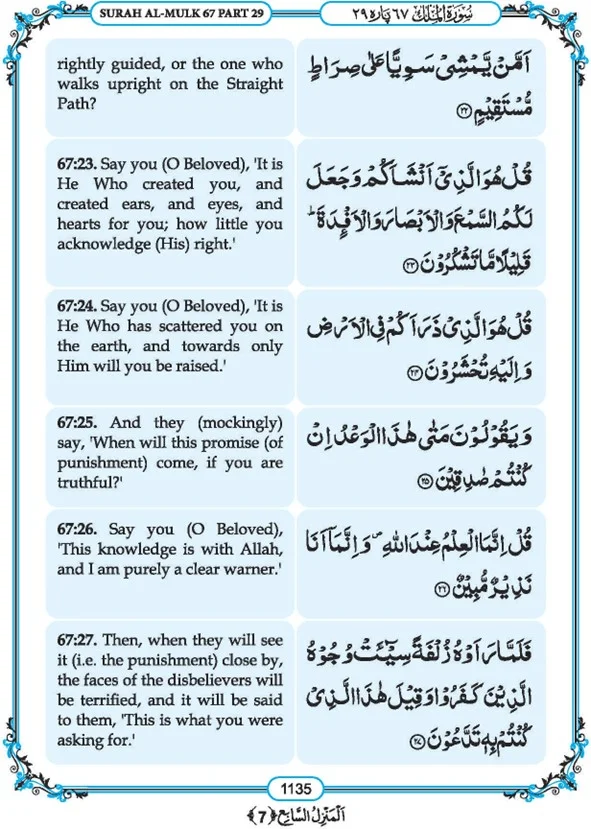 SURAH AL-MULK 67 PART 29
سُوْرَۃُ الْمُلْک ٦٧ پارہ ٢٩
rightly guided, or the one who
walks upright on the Straight
Path?
اَمَّنْ يَّمْشِيْ سَوِيًّا عَلٰى صِرَاطٍ
مُّسْتَقِيْمٍ ۝٢٢
67:23. Say you (O Beloved), 'It is
He Who created you, and
created ears, and eyes, and
hearts for you; how little you
acknowledge (His) right.'
قُلْ هُوَ الَّذِيْٓ اَنْشَاَكُمْ وَجَعَلَ
لَكُمُ السَّمْعَ وَالْاَبْصَارَ وَالْاَفْـِٕدَةَ ؕ
قَلِيْلًا مَّا تَشْكُرُوْنَ ۝٢٣
67:24. Say you (O Beloved), 'It is
He Who has scattered you on
the earth, and towards only
Him will you be raised.'
قُلْ هُوَ الَّذِيْ ذَرَاَكُمْ فِي الْاَرْضِ
وَاِلَيْهِ تُحْشَرُوْنَ ۝٢٤
67:25. And they (mockingly)
say, 'When will this promise (of
punishment) come, if you are
truthful?'
وَيَقُوْلُوْنَ مَتٰى هٰذَا الْوَعْدُ اِنْ
كُنْتُمْ صٰدِقِيْنَ ۝٢٥
67:26. Say you (O Beloved),
'This knowledge is with Allah,
and I am purely a clear warner.'
قُلْ اِنَّمَا الْعِلْمُ عِنْدَ اللّٰهِ ۪ وَاِنَّمَاۤ اَنَا
نَذِيْرٌ مُّبِيْنٌ ۝٢٦
67:27. Then, when they will see
it (i.e. the punishment) close by,
the faces of the disbelievers will
be terrified, and it will be said
to them, 'This is what you were
asking for.'
فَلَمَّا رَاَوْهُ زُلْفَةً سِيْٓـَٔتْ وُجُوْهُ
الَّذِيْنَ كَفَرُوْا وَقِيْلَ هٰذَا الَّذِيْ
كُنْتُمْ بِهٖ تَدَّعُوْنَ ۝٢٧
1135
اَلْمَنْزِلُ السَّابِعُ ﴿7﴾